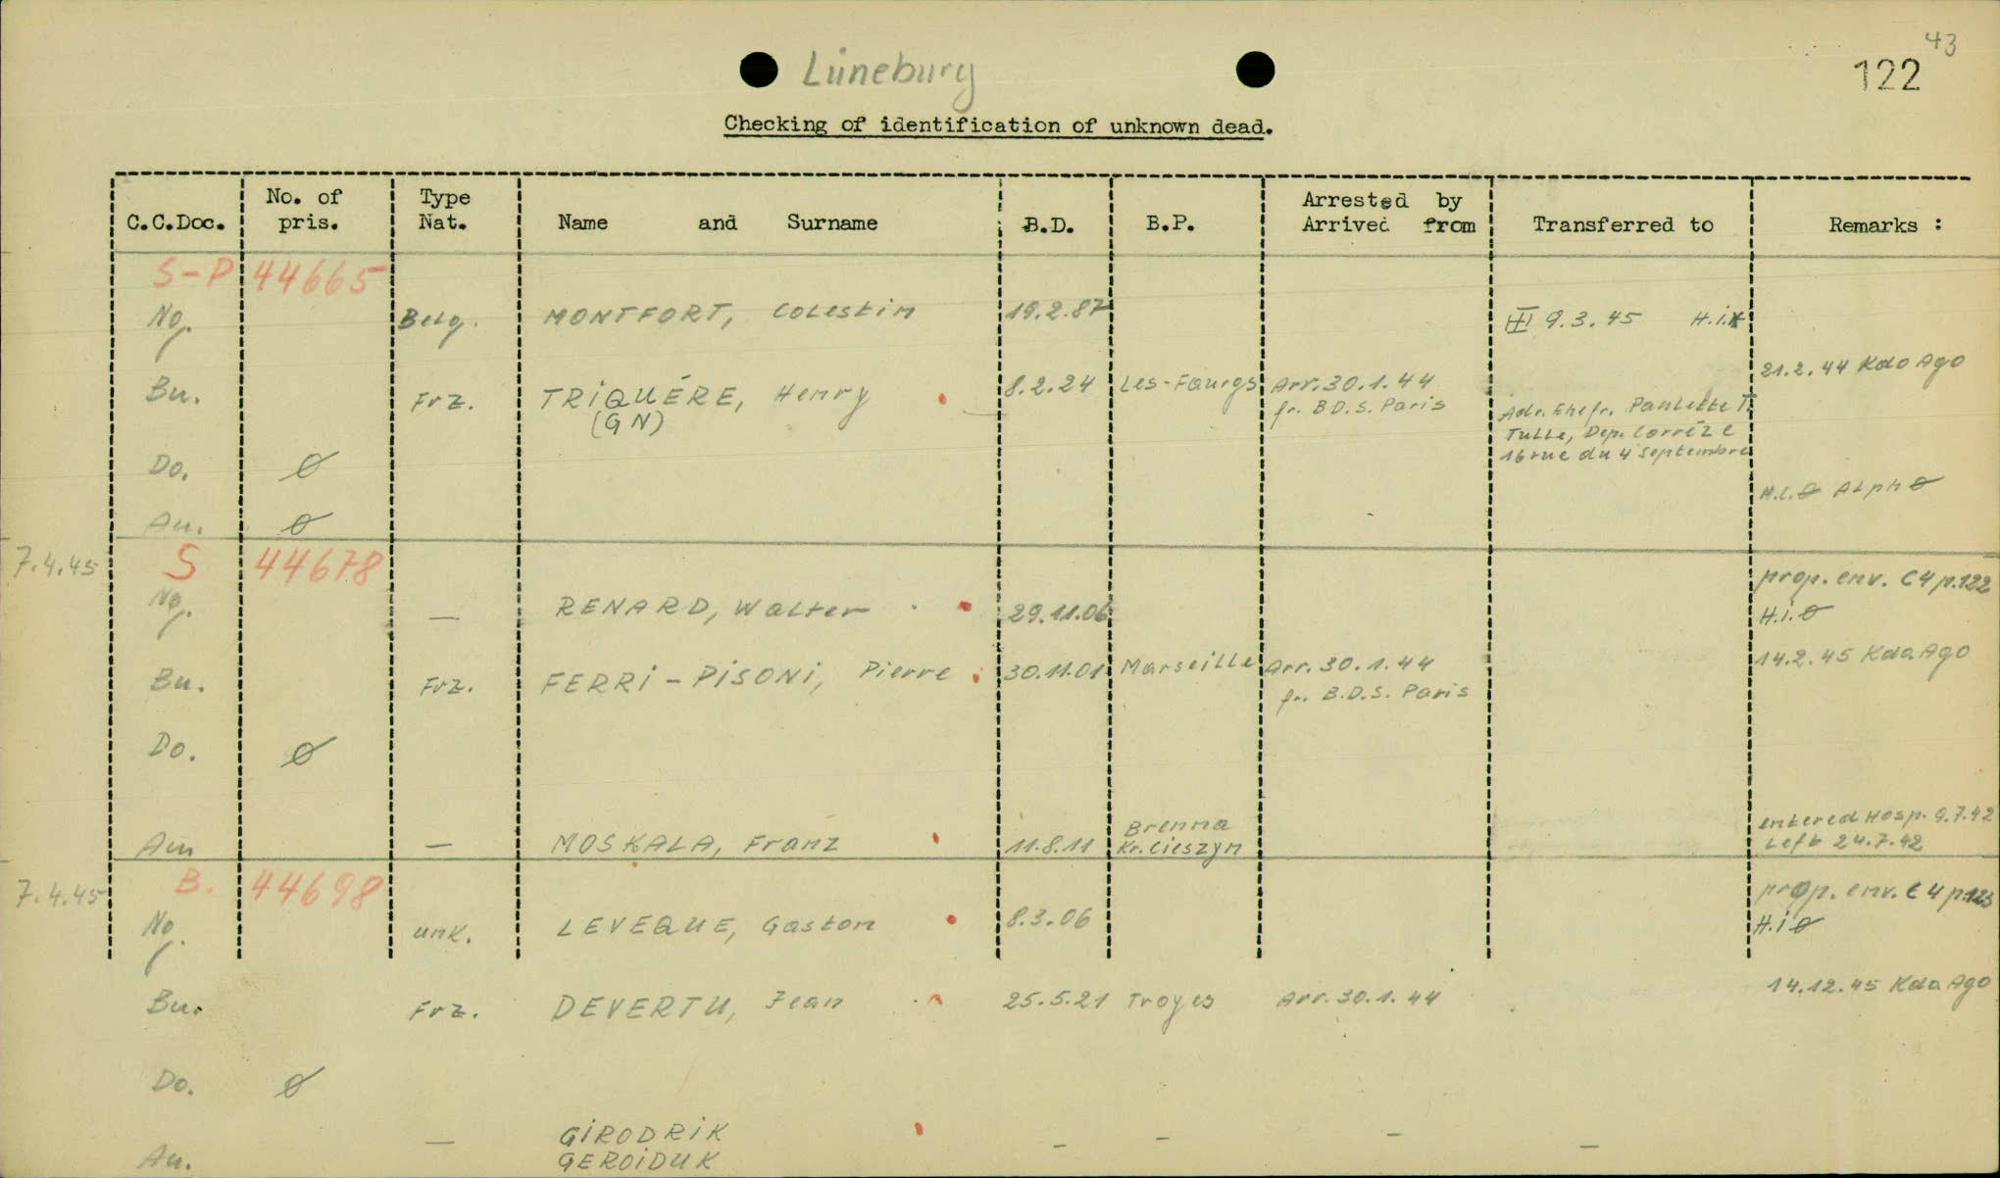 43
122
Lüneburg
Checking of identification of unknown dead.
C.C.Doc. No. of pris. Type Nat. Name and Surname B.D. B.P. Arrested by Arrived from Transferred to Remarks :
S-P 44665
Ng. Belg. MONTFORT, Colestin 19.2.87 III 9.3.45 H.i.
21.2.44 Kdo Ago
Bu. Frz. TRIQUÉRE, Henry 8.2.24 Les-Fourgs Arr. 30.1.44
(GN) fr. B.D.S. Paris
Adr. Ehefr. Paulette T.
Tulle, Dep. Corrèze
16 rue du 4 Septembre
Do. Ø
H.i. Ø Alph Ø
Au. Ø
7.4.45 S 44678 prop. env. C4 p.122
Ng. — RENARD, Walter 29.11.06 H.i. Ø
14.2.45 Kdo Ago
Bu. Frz. FERRI-PISONI, Pierre 30.11.01 Marseille Arr. 30.1.44
fr. B.D.S. Paris
Do. Ø
entered Hosp. 9.7.42
Brenna
Au — MOSKALA, Franz 11.8.11 Kr. Cieszyn Left 24.7.42
7.4.45 B. 44698 prop. env. C4 p.123
Ng. unk. LEVEQUE, Gaston 8.3.06 H.i Ø
14.12.45 Kdo Ago
Bu. Frz. DEVERTU, Jean 25.5.21 Troyes Arr. 30.1.44
Do. Ø
GIRODRIK
Au. — GEROIDUK — — — —